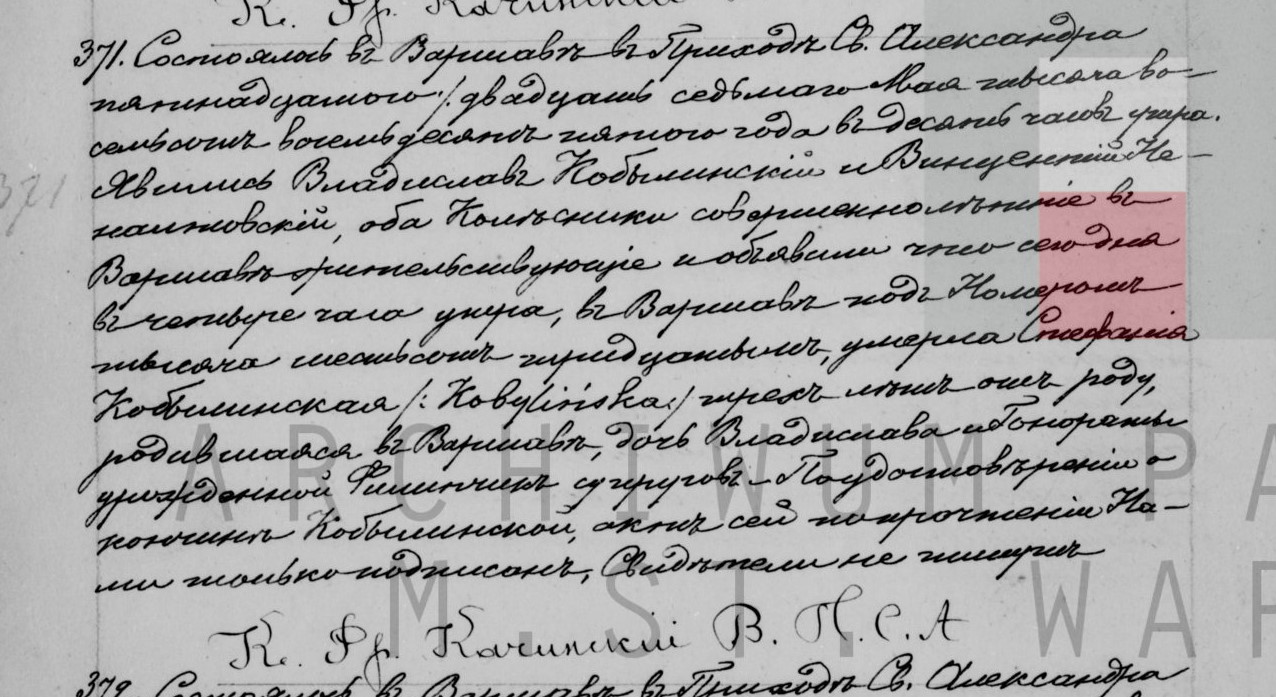 К. Фр. Качинскій
371. Состоялось въ Варшавѣ въ Приходѣ Св. Александра
пятнадцатого /. двадцать седьмаго Мая тысяча во-
семьсотъ восемьдесятъ пятого года въ десять часовъ утра.
Явились Владиславъ Кобылинскій и Винцентій Не-
371
оба Колѣсники совершеннолѣтніе въ
Варшавѣ жительствующіе и объявили что сего дня
въ четыре часа утра, въ Варшавѣ подъ Номеромъ
тысяча шестьсотъ тридцатымъ, умерла Стефанія
Кобылинская /: Kobylińska :/ трехъ лѣтъ отъ роду,
родившаяся въ Варшавѣ, дочь Владислава и Гонораты
урожденной супруговъ. По удостовѣреніи о
кончинѣ Кобылинской, актъ сей по прочтеніи На-
ми только подписанъ, Свидѣтели не пишутъ
К. Фр. Качинскій В. П. С. А
372. Состоялось въ Варшавѣ въ Приходѣ Св. Александра
ARCHIWUM PA
M. ST. WAR